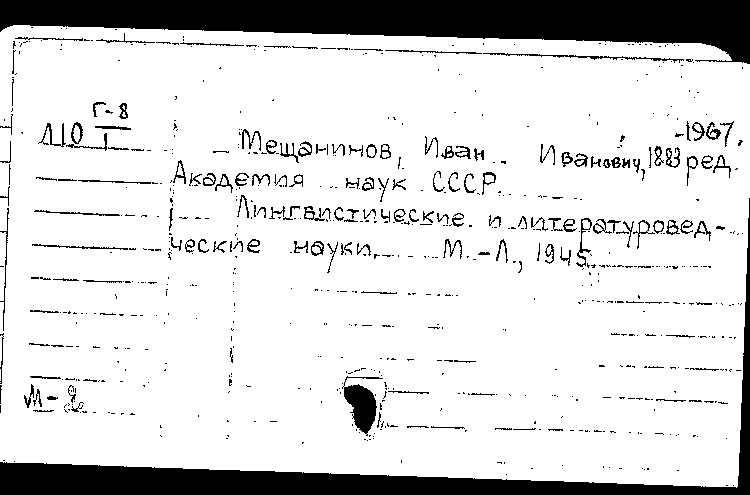 Г-8
Л10 I
-1967.
Мещанинов, Иван Иванович, 1883 ред.
Академия наук СССР.
Лингвистические и литературовед-
ческие науки. М.-Л., 1945.
М-2